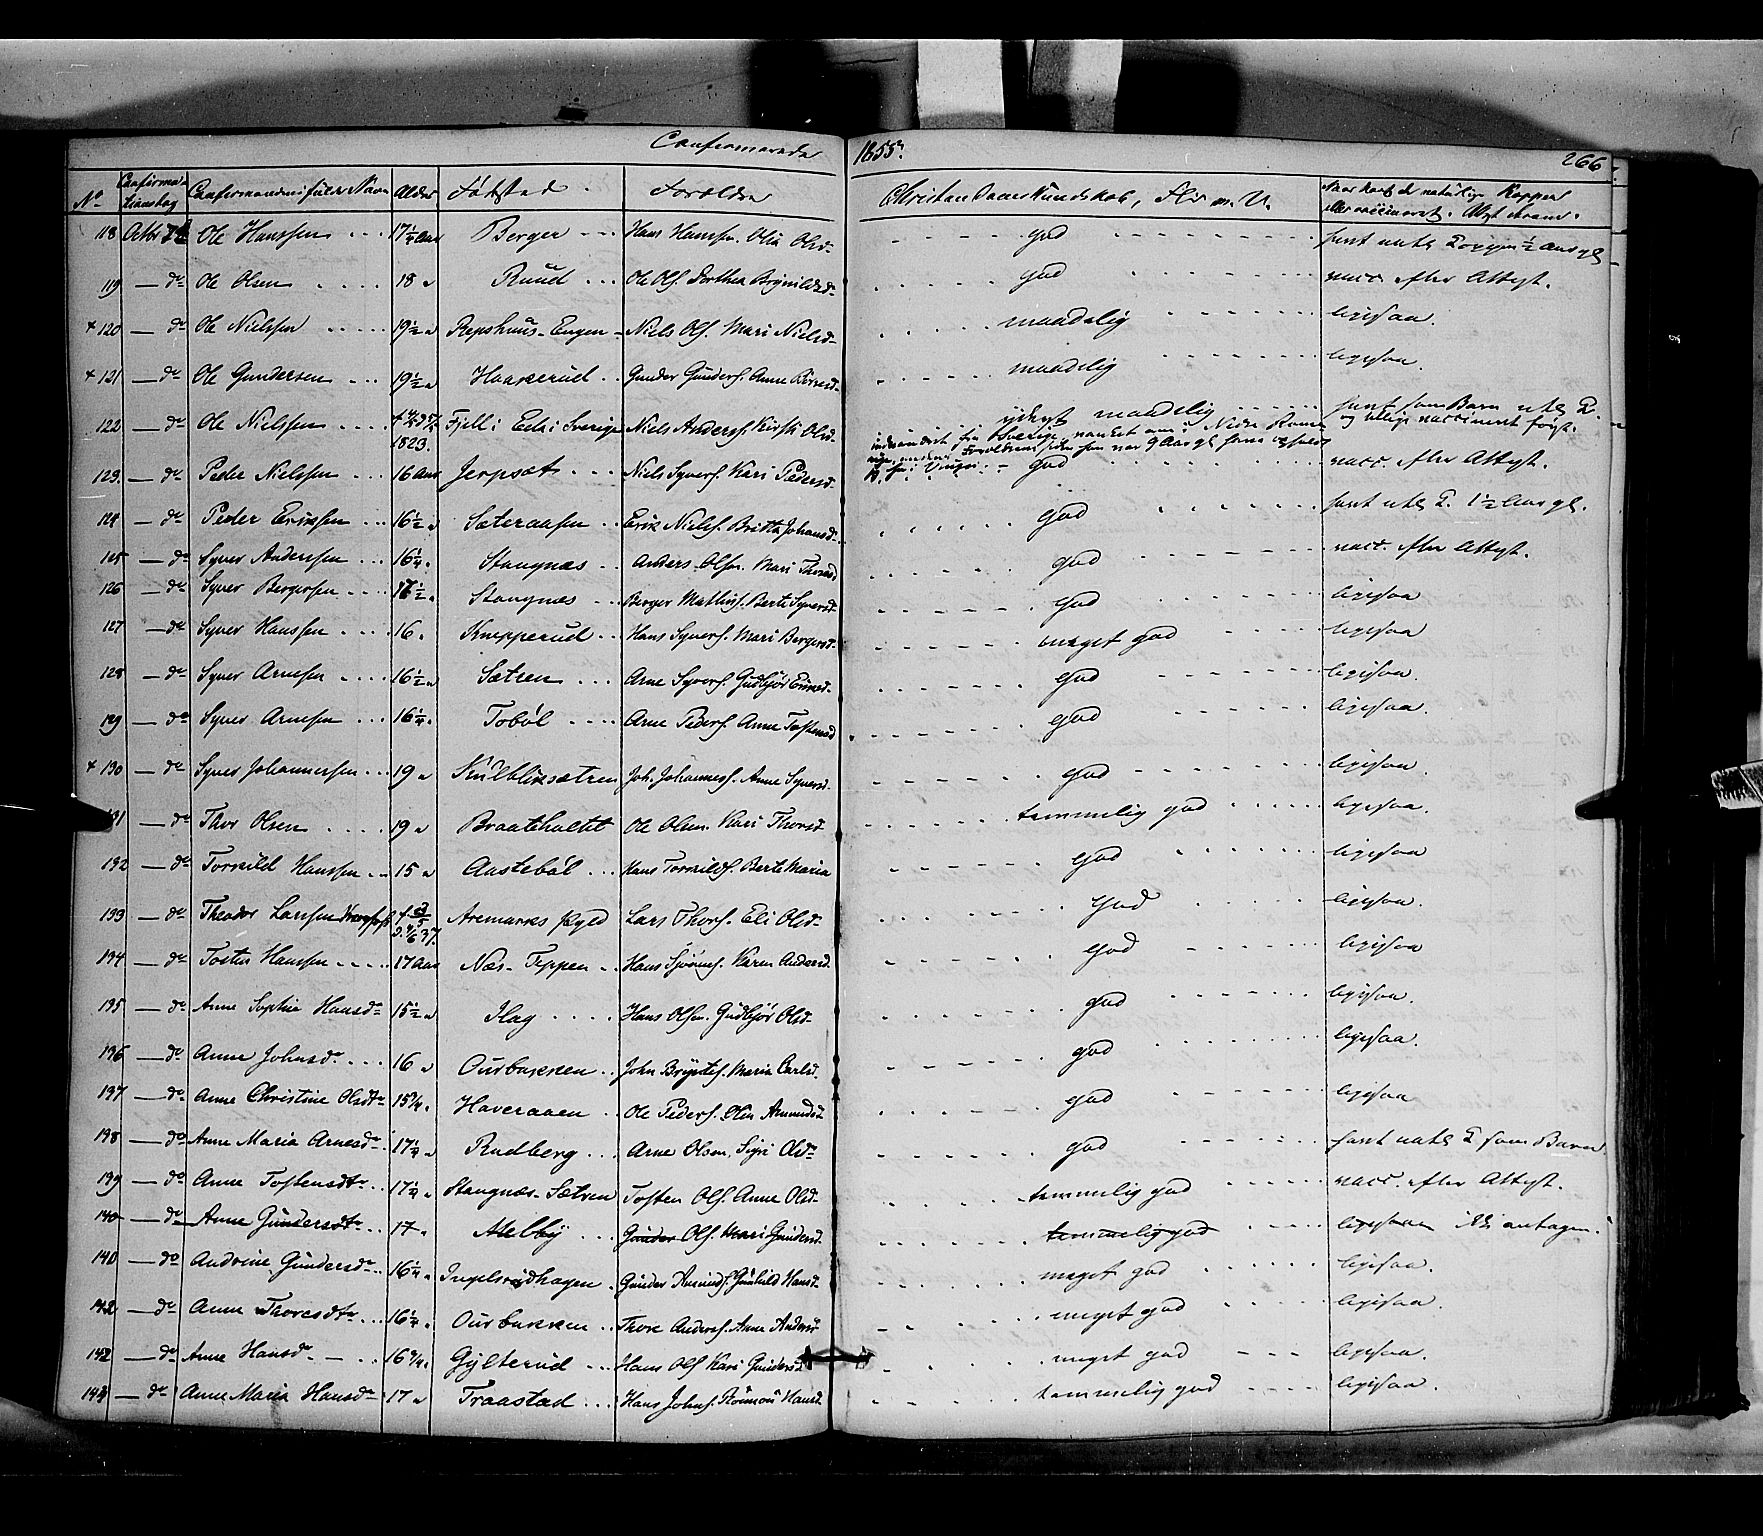 Confirmerede 1855. 266
No Confirmationsdag Confirmandens fulde Navn Alder Fødested Forældre Christendoms Kundskab, Flid m. V. Naar havt de naturlige Kopper eller vaccineret. Udgt
118 Octbr Ole Hanssen 17 1/4 Aar Berger Hans Hanssen. Olia Olsd. god havt natl Kopper 1/2 Aar gl
119 do Ole Olsen 18 " Ruud Ole Ols. Dorthea Brynildsd. god vacc. efter Attest.
+ 120 do Ole Nielssen 19 1/2 " Repshuus-Engen Niels Ols. Mari Nielsd. maadelig ligesaa.
+ 121 do Ole Gundersen 19 1/2 " Haakerud Gunder Gunders. Anne maadelig ligesaa.
122 do Ole Nielssen 1823. Fjell i Eda i Sverige Niels Anders. Kirsti Olsd. yderst maadelig havt som Barn natl K.
indvandret fra Sverige, vanket om i Nedre og tillige vaccineret
siden han var 9 Aar gl
123. do Peder Nielssen 16 Aar Jerpsæt Niels Syvers. Kari Pedersd. god vacc. efter Attest.
124 do Peder Erikssen 16 1/2 " Sæteraasen Erik Niels. Britta Johansd. god havt natl K. 1 1/2 Aar gl.
125 do Syver Anderssen 16 1/4 " Stangnæs Anders Olsen. Mari Thoresd. god vacc. efter Attest.
126 do Syver Bergersen 17 1/2 " Stangnæs Berger Mathis. Berte Syversd. god ligesaa
127 do Syver Hanssen 16 " Knapperud Hans Syvers. Mari Bergersd. meget god ligesaa
128 do Syver Arnesen 16 1/2 " Sætren Arne Syvers. Gudbjør god ligesaa.
129 do Syver Arnesen 16 1/4 " Tobøl Arne Peders. Anne Tostensd. god ligesaa.
+ 130 do Syver Johannessen 19 " Kulbliksætren Joh. Johannes. Anne Syversd. god ligesaa.
131 do Thor Olsen 19 " Braateholtet Ole Olsen. Kari Thorsd. temmelig god ligesaa.
132 do Torkild Hanssen 15 " Austebøl Hans Torkilds. Berte Maria god ligesaa
133 do Theodor Larssen f d. 4/6 37. Aremarks Lars Thors. Eli Olsd. god ligesaa.
134 do Tosten Hanssen 17 Aar Næs-Teppen Hans Karen Andersd. god ligesaa
135 do Anne Sophia Hansdr 15 1/2 " Ilag Hans Olsen. Gudbjør Olsd. god ligesaa.
136 do Anne Johnsdr 16 " Ourbakken John Maria Carlsd. god ligesaa.
137 do Anne Christine Olsdtr 15 3/4 " Haveraaen Ole Peders. Olia Amundsd. god ligesaa
138 do Anne Maria Arnesdr 17 1/4 " Rudberg Arne Olsen. Sigri Olsd. god havt natl K som Barn
139 do Anne Tostensdtr 17 1/2 " Stangnæs-Sætren Tosten Ols. Anne Olsd. temmelig god vacc. efter Attest.
140 do Anne Gundersdtr 17 " Melby Gunder Ols. Mari Gundersd. temmelig god ligesaa antagen.
140 do Andrine Gundersdr 16 1/4 " Ingelsrudhagen Gunder Gunhild Hansd. meget god ligesaa.
142 do Anne Thoresdtr 16 1/4 " Ourbakken Thore Anders. Anne Andersd. meget god ligesaa.
142 do Anne Hansdr 16 3/4 " Gylterud Hans Ols Kari Gundersd. meget god ligesaa.
143 do Anne Maria Hansdr 17 " Traastad Hans Johns. Hansd. temmelig god ligesaa.